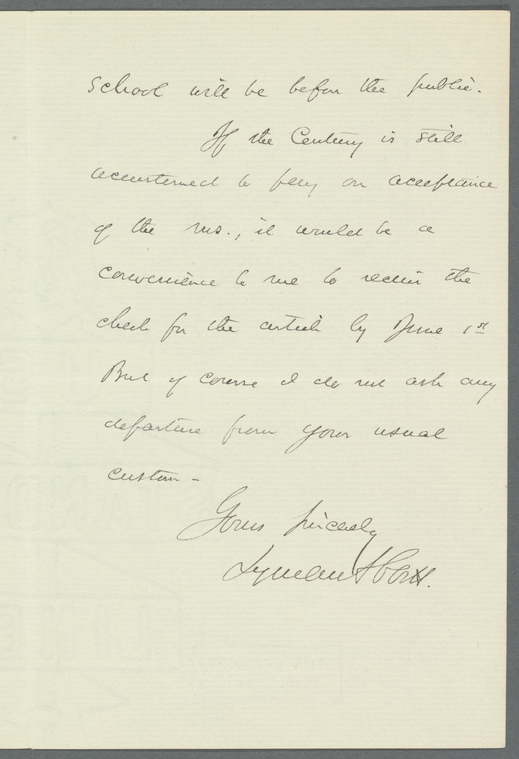 school will be before the public.
If the Century is still
accustomed to pay on acceptance
of the ms., it would be a
convenience to me to receive the
check for the article by June 1st
But of course I do not ask any
departure from your usual
custom -
Yours sincerely
Lyman Abbott.